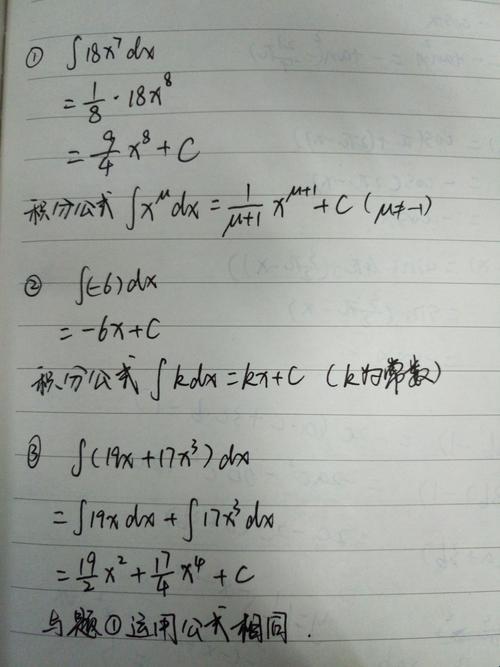 ① ∫18x⁷dx
= 1/8 · 18x⁸
= 9/4 x⁸ + C
积分公式 ∫x^μ dx = 1/(μ+1) x^(μ+1) + C (μ≠-1)
② ∫(-6)dx
= -6x + C
积分公式 ∫kdx = kx + C (k为常数)
③ ∫(19x + 17x³)dx
= ∫19xdx + ∫17x³dx
= 19/2 x² + 17/4 x⁴ + C
与题①运用公式相同.